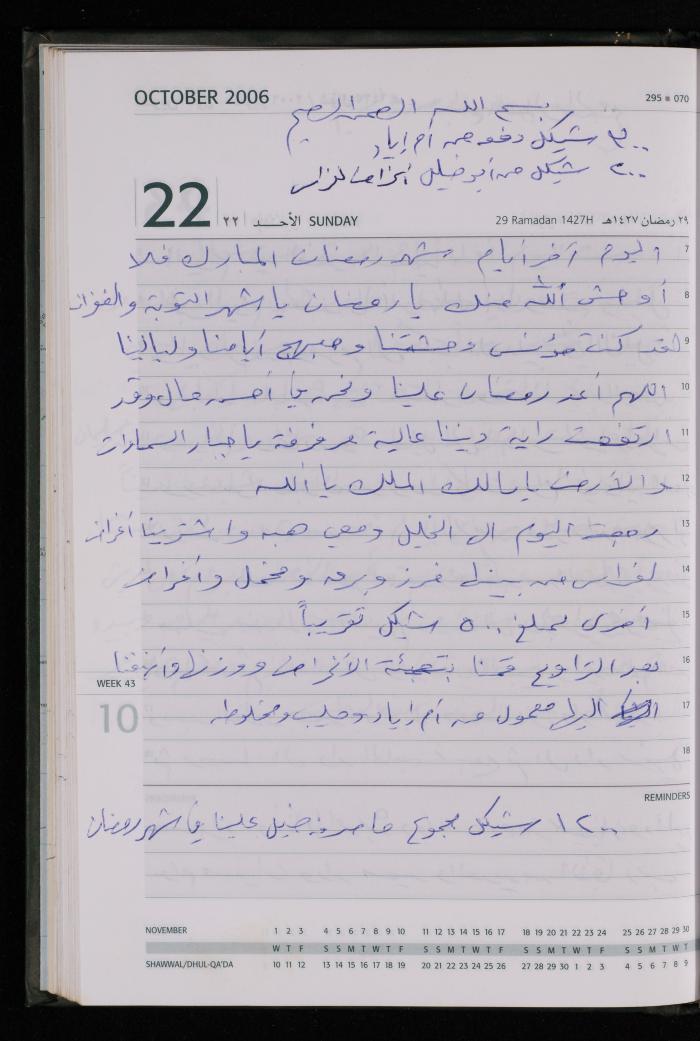 OCTOBER 2006
295 ■ 070
بسم الله الرحمن الرحيم
٣٠٠ شيكل دفعه من أم إياد
٢٠٠ شيكل من أبو خليل أغراض للدار
22 ٢٢ الأحـــد SUNDAY
29 Ramadan 1427H ٢٩ رمضان ١٤٢٧هـ
7 اليوم آخر أيام شهر رمضان المبارك فلا
8 أوحش الله منك يا رمضان يا شهر التوبة والغفران
9 لقد كنت مؤنس وحشتنا ومبهج أيامنا وليالينا
10 اللهم أعد رمضان علينا ونحن في أحسن حال وقد
11 ارتفعت راية ديننا عالية مرفرفة يا جبار السماوات
12 والأرض يا مالك الملك يا الله
13 رجعت اليوم الى الخليل ومعي هبه واشترينا أغراض
14 لفراس من بينها فرز وبرده ومخمل وأغراض
15 أخرى بمبلغ ٥٠٠ شيكل تقريباً
16 بعد التراويح قمنا بتعبئة الأغراض ووزنها وأضفنا
WEEK 43
17 اليها معمول من أم إياد وحليب ومخلوطه
10
18
REMINDERS
١٢٠٠ شيكل مجموع ما صرفه خليل علينا في شهر رمضان
NOVEMBER 1 2 3 4 5 6 7 8 9 10 11 12 13 14 15 16 17 18 19 20 21 22 23 24 25 26 27 28 29 30
W T F S S M T W T F S S M T W T F S S M T W T F S S M T W T
SHAWWAL/DHUL-QA'DA 10 11 12 13 14 15 16 17 18 19 20 21 22 23 24 25 26 27 28 29 30 1 2 3 4 5 6 7 8 9